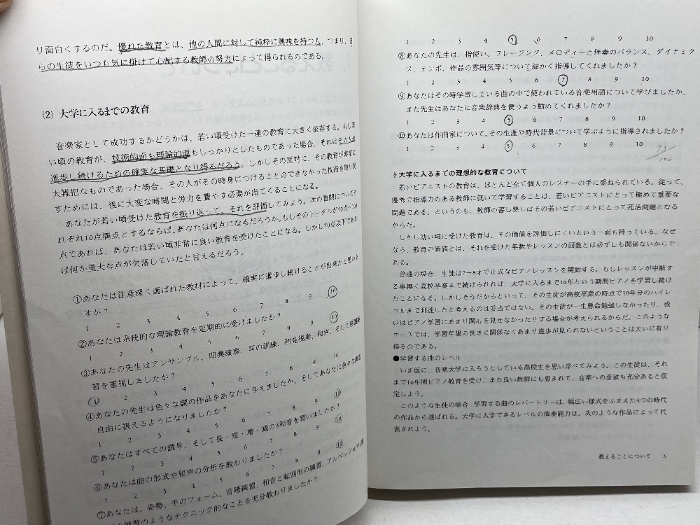 り面白くするのだ。優れた教育とは、他の人間に対して純粋に興味を持つ人、つまり、自
らの生徒をいつも気に掛けて心配する教師の努力によって得られるのである。
(2) 大学に入るまでの教育
音楽家として成功するかどうかは、若い頃受けた一連の教育に大きく依存する。もし若
い頃の教育が、技術的にも理論的にもしっかりとしたものであった場合、それは
進歩し続けるための確実な基礎となり得るだろう。しかしその反対に、その教育が非常に
大雑把なものであった場合、その人がその時身につけることのできなかった教育を取り戻
すためには、後に大変な時間と労力を費やす必要が出てくることになる。
あなたが若い頃受けた教育を振り返って、それを評価してみよう。次の質問についてそ
れぞれ10点満点とするならば、あなたは何点になるだろうか。もしそのトータルが
点であれば、あなたは若い頃非常に良い教育を受けたことになる。しかし
ば何か重大な点が欠落していたと言えるだろう。
①あなたは注意深く選ばれた教材によって、確実に進歩し続けることが出来たと思いま
すか？
1 2 3 4 5 6 7 8 9 10
②あなたは系統的な理論教育を定期的に受けましたか？
1 2 3 4 5 6 7 8 9 10
③あなたの先生はアンサンブル、伴奏、耳の訓練、初見視奏、和声、そして
習を重視しましたか？
1 2 3 4 5 6 7 8 9 10
④あなたの先生は色々な調の作品をあなたに与えましたか、そしてあなたは色々な調を
自由に扱えるようになりましたか？
1 2 3 4 5 6 7 8 9 10
⑤あなたはすべての調号、そして長・短・増・減の3和音を習いましたか？
1 2 3 4 5 6 7 8 9 10
⑥あなたは曲の形式や和声の分析を教わりましたか？
1 2 3 4 5 6 7 8 9 10
⑦あなたは、姿勢、手のフォーム、音階練習、和音と転回形の練習、アルペッジョ
のようなテクニック的なことを充分教わりましたか？
1 2 3 4 5 6 7 8 9 10
⑧あなたの先生は、指使い、フレージング、メロディーと伴奏のバランス、ダイナミク
ス、テンポ、作品の雰囲気等について細かく指導してくれましたか？
1 2 3 4 5 6 7 8 9 10
⑨あなたはその時学習している曲の中で使われている音楽用語について学びましたか、
また先生はあなたに音楽辞典を使うよう勧めてくれましたか？
1 2 3 4 5 6 7 8 9 10
⑩あなたは作曲家について、その生涯や時代背景について学ぶように指導されましたか？
1 2 3 4 5 6 7 8 9 10
大学に入るまでの理想的な教育について
若いピアニストの教育は、ほとんど全て個人のレスナーの手に委ねられている。従って、
優秀で指導力のある教師に就いて学習することは、若いピアニストにとって極めて重要な
問題である。というのも、教師の善し悪しはその若いピアニストにとって死活問題となる
からだ。
しかし幼い頃に受けた教育は、その価値を評価しにくいという一面も持っている。なぜ
なら、教育の価値とは、それを受けた年数やレッスンの回数とは必ずしも関係ないからで
ある。
普通の場合、生徒は7〜8才で正式なピアノレッスンを開始する。もしレッスンが中断す
る事無く高校卒業まで続けられれば、大学に入るまで10年という期間ピアノを学習し続け
たことになる。しかしそうだからといって、その生徒が高校卒業の時点で10年分のハイレ
ベルまで到達したと考えるのは妥当ではない。その生徒が一生懸命勉強しなかったり、或
いはピアノ学習にあまり関心を見せなかったりする場合が考えられるからだ。このような
ケースでは、学習年数の長さに関係なくあまり進歩が見られないということは大いに有り
得るのである。
●学習する曲のレベル
いま仮に、音楽大学に入ろうとしている高校生を思い浮べてみよう。この生徒は、それ
まで10年間ピアノ教育を受け、また良い教師にも恵まれて、音楽への意欲も充分あると仮
定しよう。
このような生徒の場合、学習する曲のレパートリーは、幅広い様式をふまえた4つの時代
の作品から選ばれる。大学に入学できるレベルの演奏能力は、次のような作品によって代
表されよう。
教えることについて 5